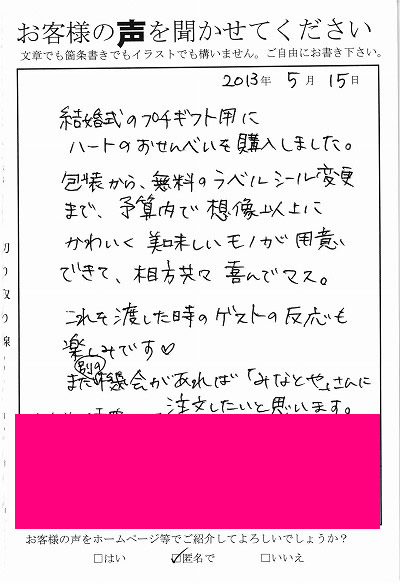 お客様の声を聞かせてください
文章でも箇条書きでもイラストでも構いません。ご自由にお書き下さい。
2013年 5月 15日
結婚式のプチギフト用に
ハートのおせんべいを購入しました。
包装から、無料のラベルシール変更
まで、予算内で想像以上に
かわいく美味しいモノが用意
できて、相方共々喜んでマス。
これを渡した時のゲストの反応も
楽しみです♡
また別の機会があれば「みなとや」さんに
注文したいと思います。
切り取り線
お客様の声をホームページ等でご紹介してよろしいでしょうか？
□はい ☑匿名で □いいえ